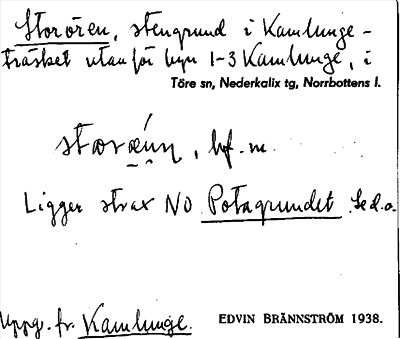 Storören, stengrund i Kamlunge-
träsket utanför byn 1-3 Kamlunge, i
Töre sn, Nederkalix tg, Norrbottens l.
storœ́nn, bf. m.
Ligger strax NO Potagrundet. Se d.o.
Uppg. fr. Kamlunge. EDVIN BRÄNNSTRÖM 1938.